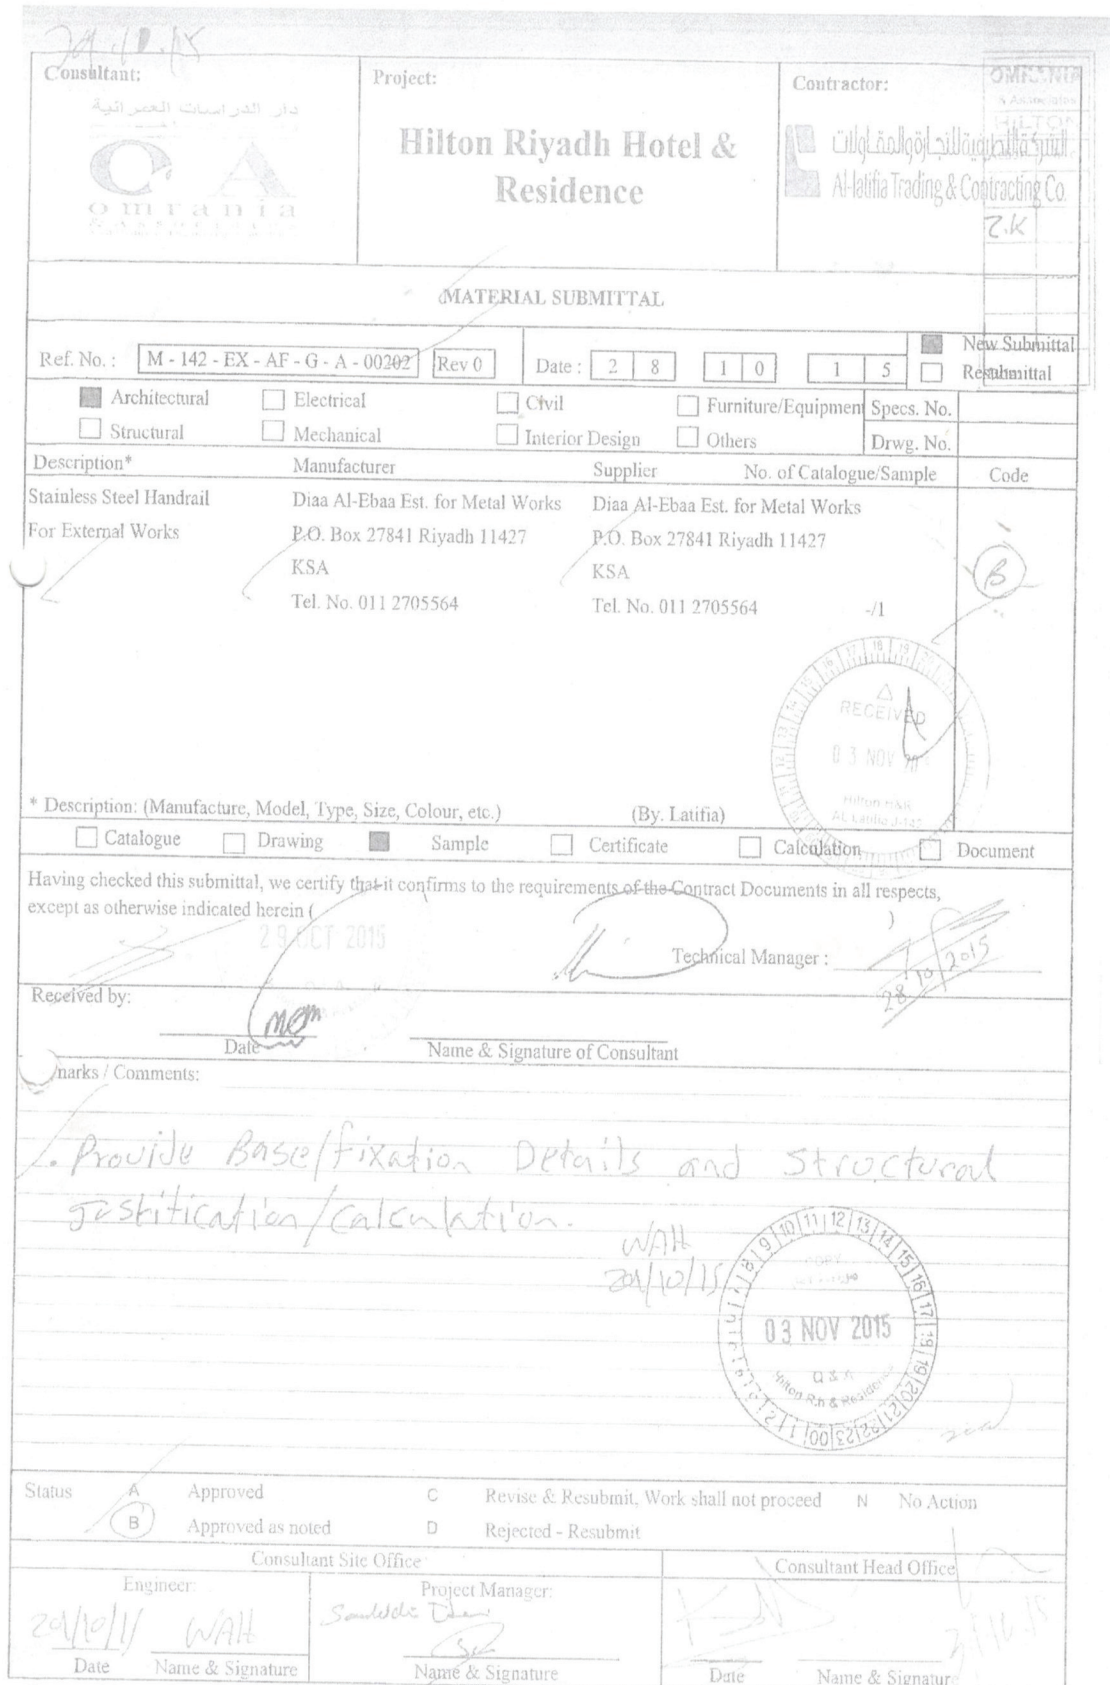 Consultant:
دار الدراسات العمرانية
omrania
& Associates
Project:
Hilton Riyadh Hotel &
Residence
Contractor:
Al-latifia Trading & Contracting Co.
HILTON
MATERIAL SUBMITTAL
Ref. No. : M - 142 - EX - AF - G - A - 00202 Rev 0 Date : 2 8 1 0 1 5
New Submittal
Resubmittal
Architectural Electrical Civil Furniture/Equipment Specs. No.
Structural Mechanical Interior Design Others Drwg. No.
Description* Manufacturer Supplier No. of Catalogue/Sample Code
Stainless Steel Handrail Diaa Al-Ebaa Est. for Metal Works Diaa Al-Ebaa Est. for Metal Works
For External Works P.O. Box 27841 Riyadh 11427 P.O. Box 27841 Riyadh 11427
KSA KSA
B
Tel. No. 011 2705564 Tel. No. 011 2705564 -/1
RECEIVED
03 NOV
Hilton H&R
* Description: (Manufacture, Model, Type, Size, Colour, etc.) (By. Latifia)
Catalogue Drawing Sample Certificate Calculation Document
Having checked this submittal, we certify that it confirms to the requirements of the Contract Documents in all respects,
except as otherwise indicated herein ( )
29 OCT 2015
Technical Manager :
28/10/2015
Received by:
Date Name & Signature of Consultant
marks / Comments:
. Provide Base/fixation Details and Structural
justification/calculation.
WAH
29/10/15
03 NOV 2015
Hilton R.h & Residence
Status A Approved C Revise & Resubmit, Work shall not proceed N No Action
B Approved as noted D Rejected - Resubmit
Consultant Site Office Consultant Head Office
Engineer: Project Manager:
WAH
Date Name & Signature Name & Signature Date Name & Signature